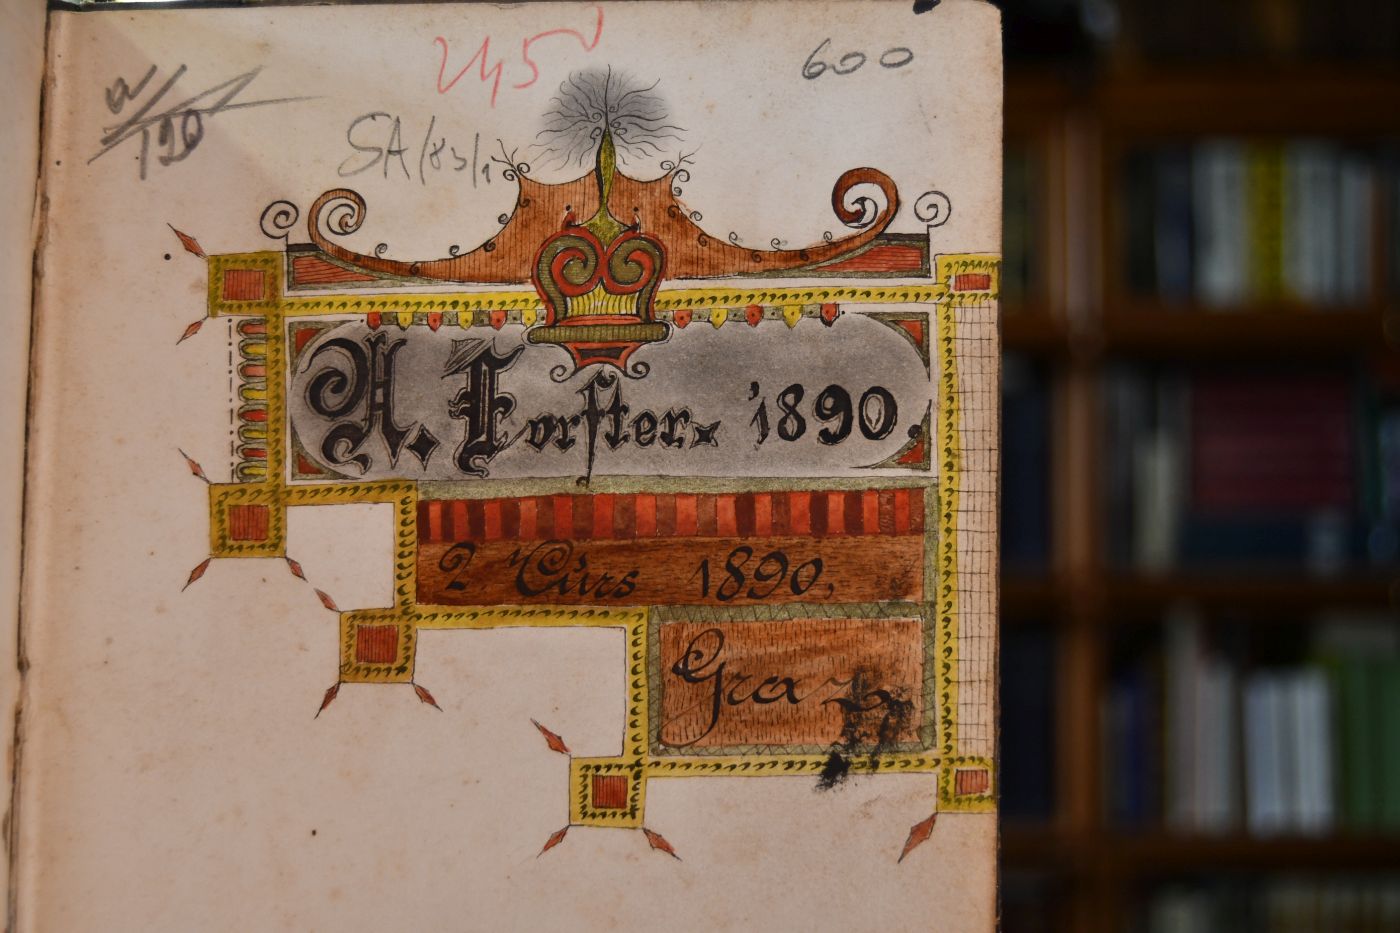 245
600
a/190
SA/83/1
A. Forster. 1890.
2. Cürs 1890,
Graz.